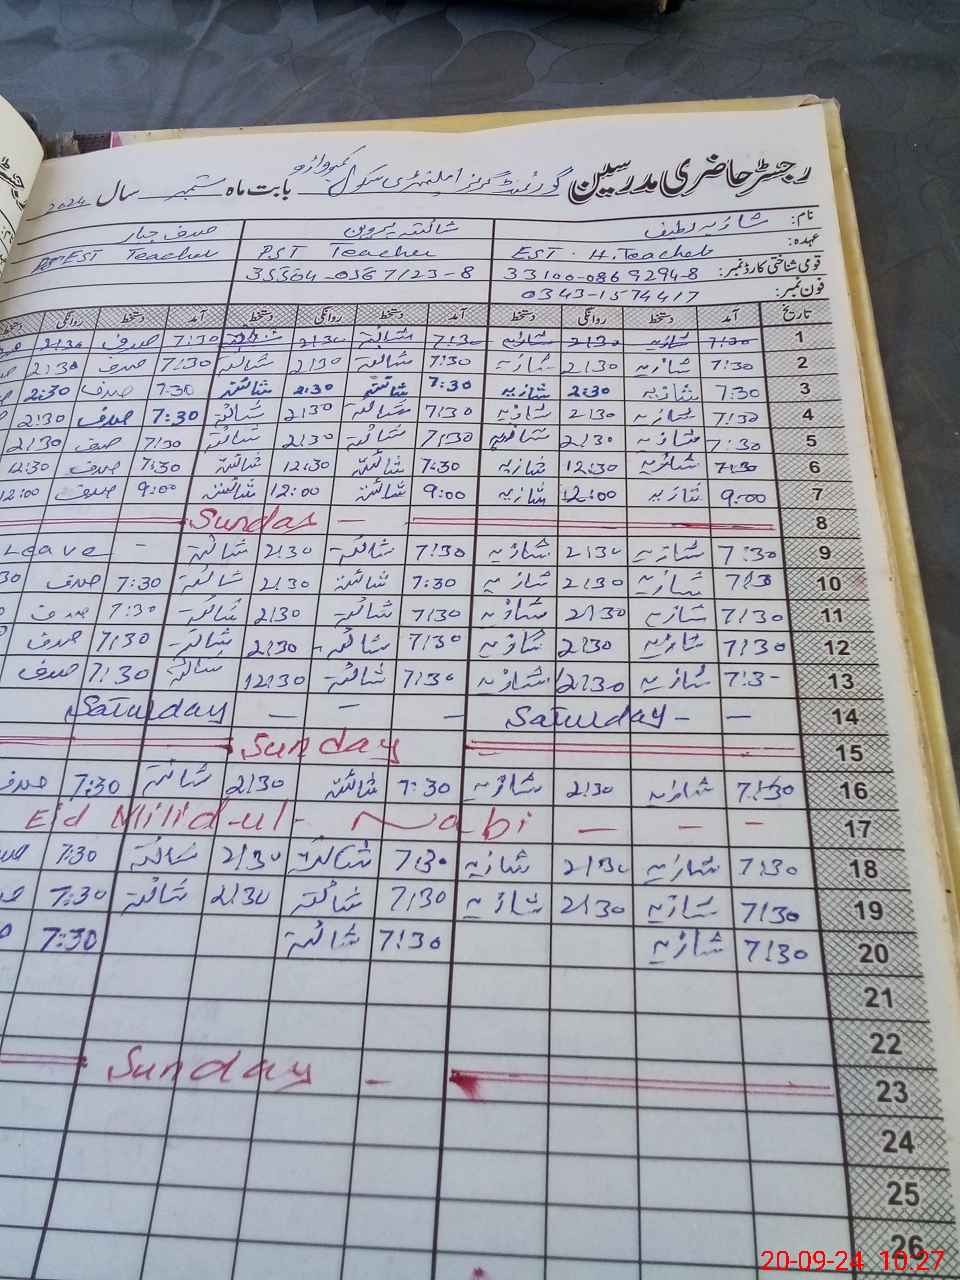 رجسٹر حاضری مدرسین گورنمنٹ گرلز ایلیمنٹری سکول بابت ماہ ستمبر سال 2024
نام: شازیہ لطیف شائستہ پروین صدف جبار
عہدہ: EST. H.Teacher PST Teacher EST Teacher
قومی شناختی کارڈ نمبر: 33100-0869294-8 35304-0367123-8
فون نمبر: 0343-1574417
تاریخ آمد دستخط روانگی دستخط آمد دستخط روانگی دستخط آمد دستخط روانگی دستخط
1 7:30 شازیہ 2:30 شازیہ 7:30 شائستہ 2:30 7:30 صدف 2:30
2 7:30 شازیہ 2:30 شازیہ 7:30 شائستہ 2:30 شائستہ 7:30 صدف 2:30
3 7:30 شازیہ 2:30 شازیہ 7:30 شائستہ 2:30 شائستہ 7:30 صدف 2:30
4 7:30 شازیہ 2:30 شازیہ 7:30 شائستہ 2:30 شائستہ 7:30 صدف 2:30
5 7:30 شازیہ 2:30 شازیہ 7:30 شائستہ 2:30 شائستہ 7:30 صدف 2:30
6 7:30 شازیہ 12:30 شازیہ 7:30 شائستہ 12:30 شائستہ 7:30 صدف 12:30
7 9:00 شازیہ 12:00 شازیہ 9:00 شائستہ 12:00 شائستہ 9:00 صدف 12:00
8 Sunday —
9 7:30 شازیہ 2:30 شازیہ 7:30 شائستہ 2:30 شائستہ Leave -
10 7:30 شازیہ 2:30 شازیہ 7:30 شائستہ 2:30 شائستہ 7:30 صدف 30
11 7:30 شازیہ 2:30 شازیہ 7:30 شائستہ 2:30 شائستہ 7:30 صدف
12 7:30 شازیہ 2:30 شازیہ 7:30 شائستہ 2:30 شائستہ 7:30 صدف
13 7:3- شازیہ 12:30 شازیہ 7:30 شائستہ 12:30 شائستہ 7:30 صدف
14 Saturday - — Saturday — — —
15 Sunday
16 7:30 شازیہ 2:30 شازیہ 7:30 شائستہ 2:30 شائستہ 7:30 صدف
17 Eid Milid-ul- Nabi — — —
18 7:30 شازیہ 2:30 شازیہ 7:30 شائستہ 2:30 شائستہ 7:30
19 7:30 شازیہ 2:30 شازیہ 7:30 شائستہ 2:30 شائستہ 7:30
20 7:30 شازیہ 7:30 شائستہ 7:30
21
22
23 Sunday —
24
25
26
20-09-24 10:27